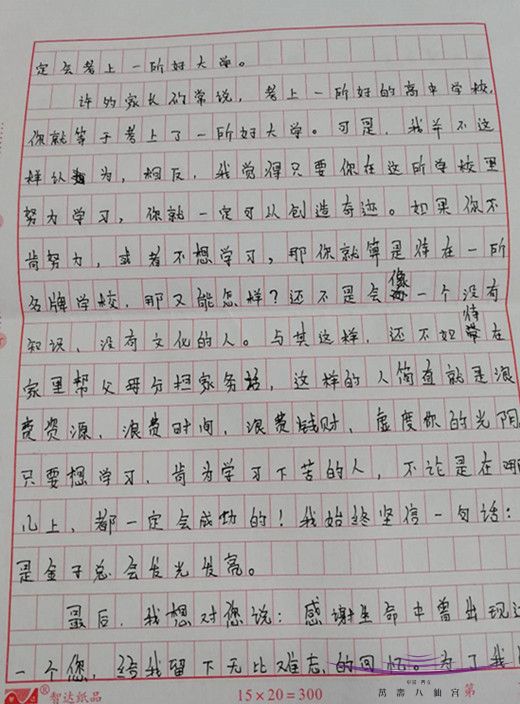 定会考上一所好大学。
许多家长仍常说，考上一所好的高中学校，
你就等于考上了一所好大学。可是，我并不这
样认为，相反，我觉得只要你在这所学校里
努力学习，你就一定可以创造奇迹。如果你不
肯努力，或者不想学习，那你就算是待在一所
名牌学校，那又能怎样？还不是会像一个没有
知识、没有文化的人。与其这样，还不如待在
家里帮父母分担家务活，这样的人简直就是浪
费资源，浪费时间，浪费钱财，虚度你的光阴
只要想学习，肯为学习下苦的人，不论是在哪
儿上，都一定会成功的！我始终坚信一句话：
是金子总会发光发亮。
最后，我想对您说：感谢生命中曾出现过
一个您，给我留下无比难忘的回忆。为了我
智达纸品
15×20=300
萬壽八仙宮
第